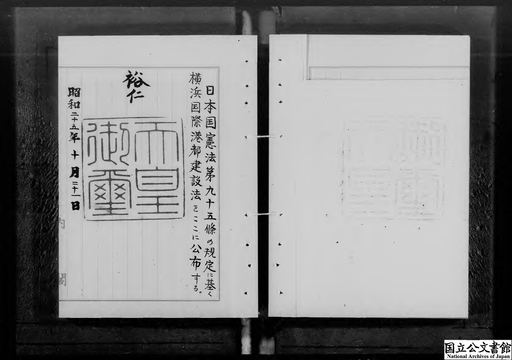 日本国憲法第九十五條の規定に基く
横浜国際港都建設法をここに公布する。
裕仁
天皇
御璽
昭和二十五年十月二十一日
内閣
国立公文書館
National Archives of Japan